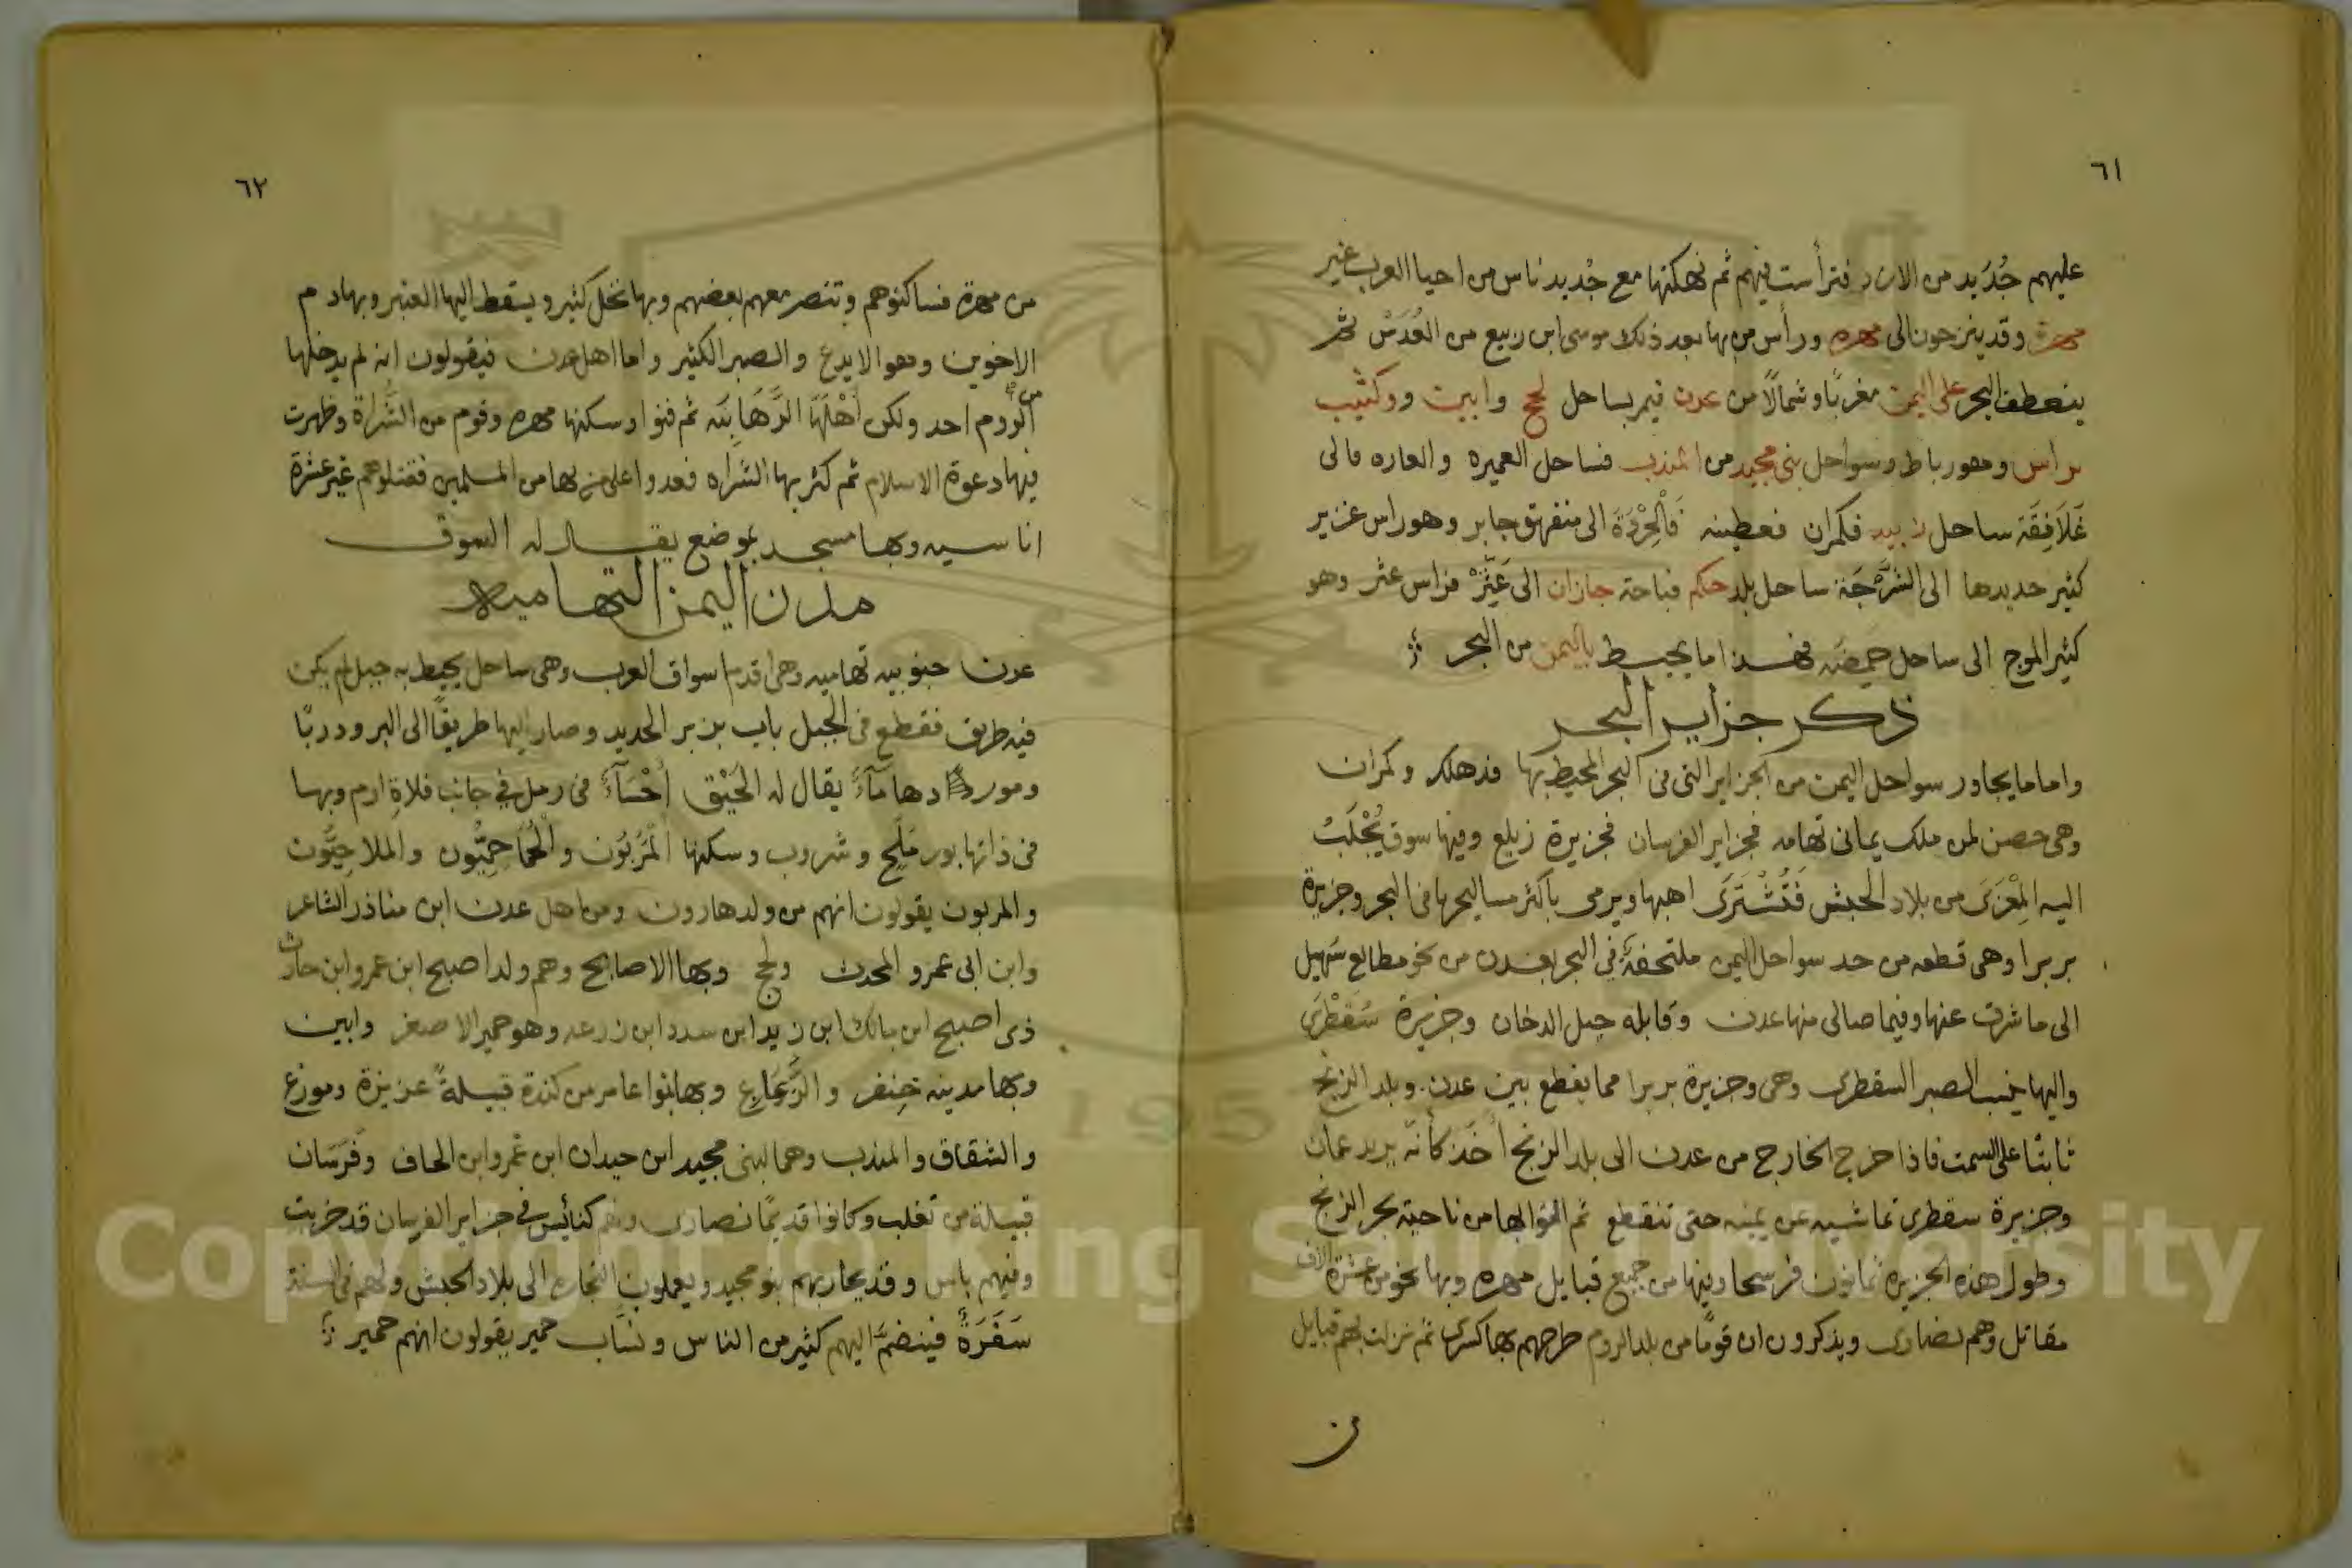 ٦١
عليهم جُدَيد من الازد فترأست فيهم ثم نهكتها مع جُديد ناس من احيا العرب غير
مهرة وقد ينزحون الى مهره ورأس من بها بعد ذلك موسى ابن ربيع من القُدَسْ ثم
ينعطف البحر على اليمن مغربًا وشمالًا من عدن فيمر بساحل لحج وابين وكثيب
برامس وهو رباط وسواحل بنى مجيد من المندب فساحل العميره والعاره فالى
غَلَافِقَة ساحل زبيد فكمران فعطينه فَالْحِرْدَة الى منفهق جابر وهو راس غزير
كثير حديدها الى الشَّرْجَة ساحل بلد حكم فباحة جازان الى عَثَّرْ فراس عثر وهو
كثير الموج الى ساحل حَمِضَه فهذا ما يحيط باليمن من البحر
ذكر جزاير البحر
واما ما يجاور سواحل اليمن من الجزاير التى فى البحر المحيط بها فدهلك وكمران
وهى حصن لمن ملك يمانى تهامه فجزاير الفرسان فجزيرة زيلع وفيها سوق يُجْلَبُ
اليه المِعْزَى من بلاد الحبش فَتُشْتَرَى اهبها ويرمى بأكثر مسالجها فى البحر وجزيرة
بربرا وهى قطعه من حد سواحل اليمن ملتحفةً فى البحر بعدن من نحو مطالع سهيل
الى ما شرق عنها وفيما صالى منها عدن وقابله جبل الدخان وجزيرة سُقُطْرَى
واليها ينسب الصبر السقطرى وهى وجزيرة بربرا مما يقطع بين عدن. وبلد الزنج
ثابتًا على السمت فاذا خرج الخارج من عدن الى بلد الزنج أخَذ كأنّه يريد عمان
وجزيرة سقطرى تماشيه عن يمينه حتى تنقطع ثم التوا بها من ناحية بحر الزنج
وطول هذه الجزيرة ثمانون فرسخا وفيها من جميع قبايل مهره وبها نحو من عشرة الاف
مقاتل وهم نصارى ويذكرون ان قومًا من بلد الروم طرحهم بها كسرى ثم نزلت بهم قبايل
من
٦٢
من مهرة فساكنوهم وتنصر معهم بعضهم وبها نخل كثير ويسقط اليها العنبر وبها دم
الاخوين وهو الايدع والصبر الكثير واما اهل عدن فيقولون انه لم يدخلها
من الروم احد ولكن أهْلَهَا الرَّهَابِنَه ثم فنوا وسكنها مهره وقوم من الشُّراة وظهرت
فيها دعوة الاسلام ثم كثر بها الشراه فعدوا على من بها من المسلمين فقتلوهم غير عشرة
اناسيه وبها مسجد بموضع يقال له السوق
مدن اليمن التهاميه
عدن جنوبيه تهاميه وهى اقدم اسواق العرب وهى ساحل يحيط به جبل لم يكن
فيه طريق فقطع فى الجبل باب بزبر الحديد وصار اليها طريقًا الى البر ودربًا
وموردها مآءٌ يقال له الحَيْق أحْسَآءٌ فى رمل فى جانب فلاةِ ارم وبها
فى ذاتها بور مَلَح وشروب وسكنها الْمَرَبُّون والْحُمَاحِمِيُّون والملاحِيُّون
والمربون يقولون انهم من ولد هارون ومن اهل عدن ابن مناذر الشاعر
وابن ابى عمرو المحدث ولحج وبها الاصابح وهم ولد اصبح ابن عمرو ابن حارث
ذى اصبح ابن مالك ابن زيد ابن سدد ابن زرعه وهو حمير الاصغر وابين
وبها مدينه خِنفر والرَّعَارِع وبها بنوا عامر من كندة قبيلةً عزيزة وموزع
والشقاق والمندب وهما لبنى مجيد ابن حيدان ابن عَمرو ابن الحاف وفَرَسَان
قبيلة من تغلب وكانوا قديمًا نصارى ولهم كنائس فى جزاير الفرسان قد خربت
وفيهم باس وقد يحاربهم بنو مجيد ويعملون التجاره الى بلاد الحبش ولهم فى السنة
سَفَرَةٌ فينضمُّ اليهم كثير من الناس ونسَّاب حمير يقولون انهم حمير
Copyright © King Saud University
195